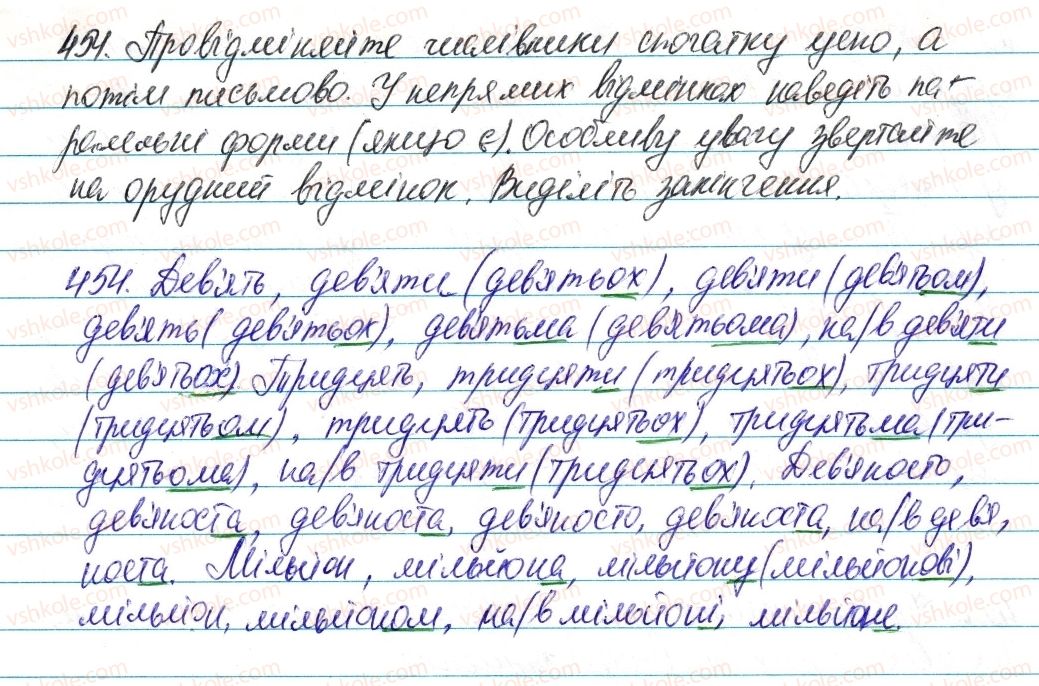 454. Провідміняйте числівники спочатку усно, а
потім письмово. У непрямих відмінках наведіть па-
ралельні форми (якщо є). Особливу увагу звертайте
на орудний відмінок. Виділіть закінчення.
454. Дев'ять, дев'яти (дев'ятьох), дев'яти (дев'ятьом),
дев'ять (дев'ятьох), дев'ятьма (дев'ятьома), на/в дев'яти
(дев'ятьох). Тридцять, тридцяти (тридцятьох), тридцяти
(тридцятьом), тридцять (тридцятьох), тридцятьма (три-
дцятьома), на/в тридцяти (тридцятьох). Дев'яносто,
дев'яноста, дев'яноста, дев'яносто, дев'яноста, на/в дев'я,
носта. Мільйон, мільйона, мільйону (мільйонові),
мільйон, мільйоном, на/в мільйоні, мільйоне.